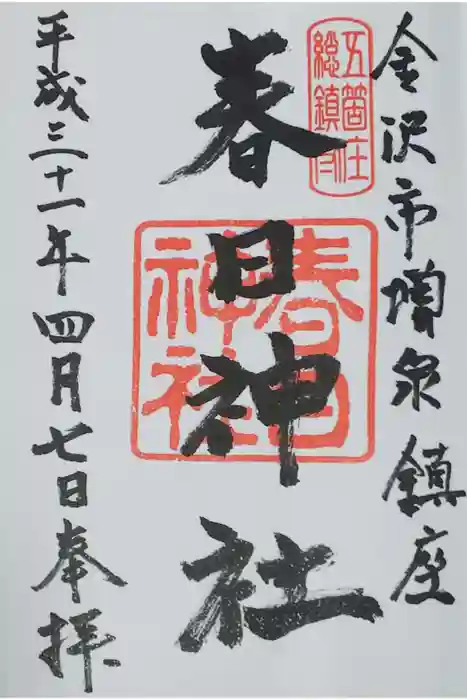 金沢市増泉鎮座
五箇庄
総鎮守
春日神社
春日
神社
平成三十一年四月七日奉拝